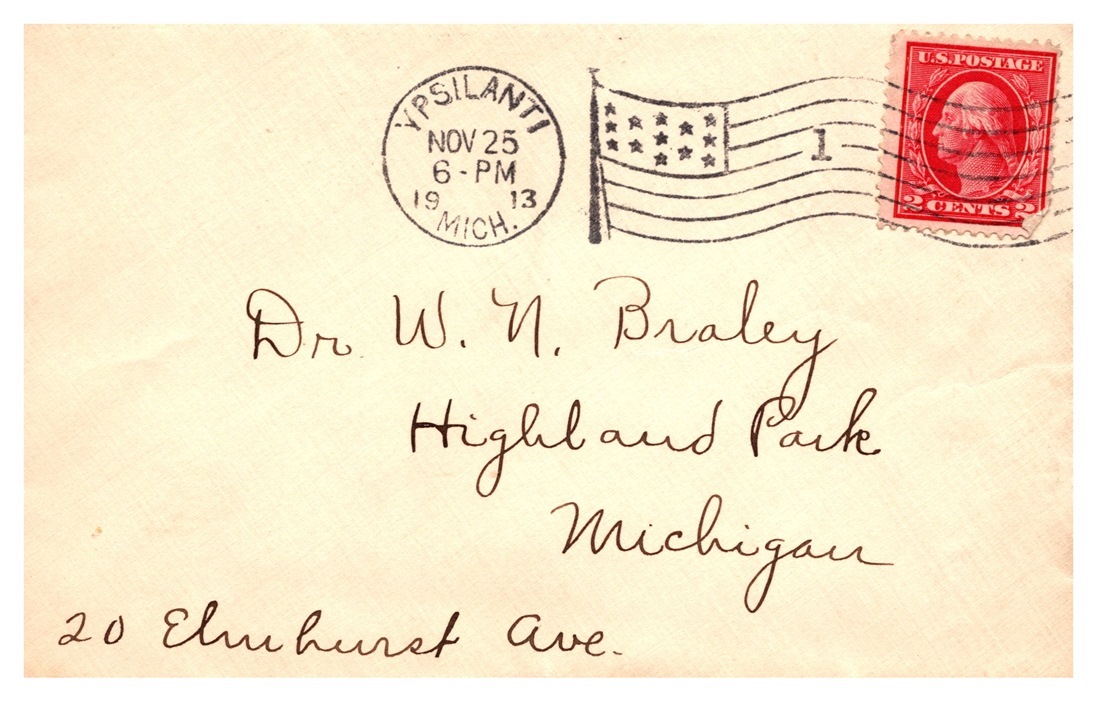 YPSILANTI
NOV 25
6 - PM
19 13
MICH.
1
U.S. POSTAGE
2 CENTS 2
Dr. W. N. Braley
Highland Park
Michigan
20 Elmhurst Ave.